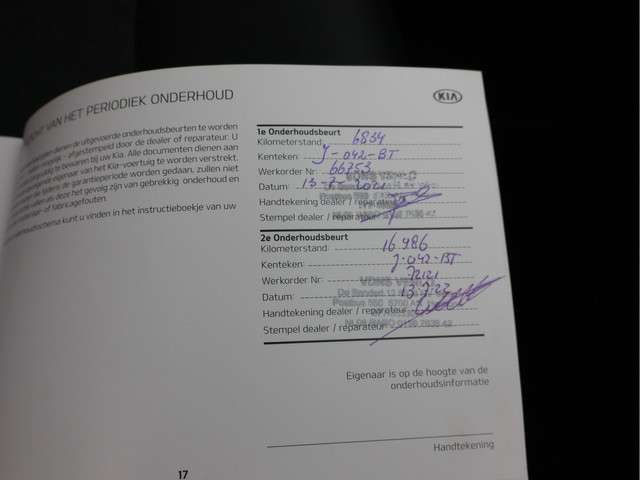 VAN HET PERIODIEK ONDERHOUD
KIA
dienen de uitgevoerde onderhoudsbeurten te worden
mogelijk - afgestempeld door de dealer of reparateur. U
te bewaren bij uw Kia. Alle documenten dienen aan
eigenaar van het Kia-voertuig te worden verstrekt.
de garantieperiode worden gedaan, zullen niet
als deze het gevolg zijn van gebrekkig onderhoud en
of fabricagefouten.
kunt u vinden in het instructieboekje van uw
1e Onderhoudsbeurt
Kilometerstand: 6834
Kenteken: J-042-BT
Werkorder Nr: 66753
Datum: 13-7-2021
Handtekening dealer / reparateur
Stempel dealer / reparateur
2e Onderhoudsbeurt
Kilometerstand: 16986
Kenteken: J-042-BT
Werkorder Nr: 72121
Datum: 13-7-22
Handtekening dealer / reparateur
Stempel dealer / reparateur
Eigenaar is op de hoogte van de
onderhoudsinformatie
Handtekening
17